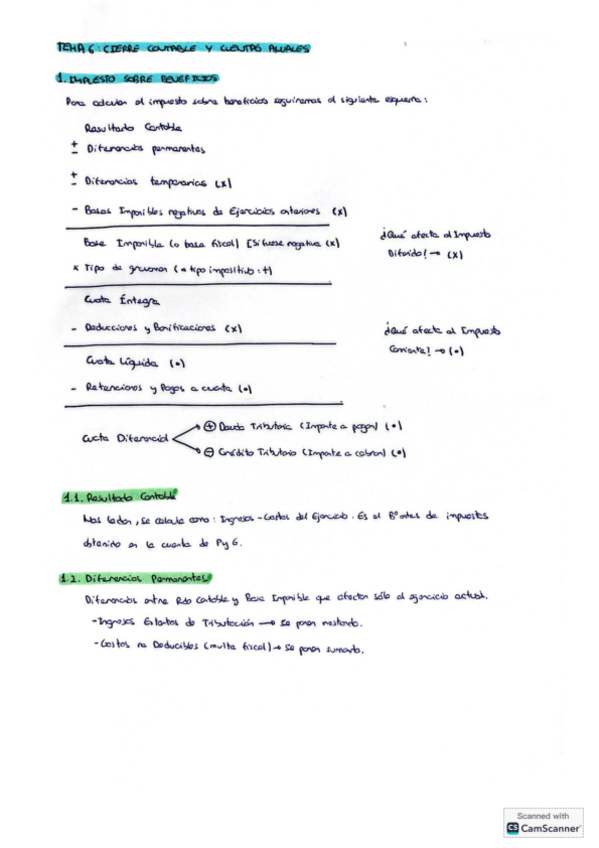 TEMA 6: CIERRE CONTABLE Y CUENTAS ANUALES
1. IMPUESTO SOBRE BENEFICIOS
Para calcular el impuesto sobre beneficios seguiremos el siguiente esquema:
Resultado Contable
± Diferencias permanentes
± Diferencias temporarias (x)
- Bases Imponibles negativas de Ejercicios anteriores (x)
Base Imponible (o base fiscal) [Si fuese negativa (x)
¿Qué afecta al Impuesto
Diferido? → (x)
x Tipo de gravamen (o tipo impositivo: t)
Cuota Íntegra
- Deducciones y Bonificaciones (x)
¿Qué afecta al Impuesto
Corriente? → (•)
Cuota Líquida (•)
- Retenciones y Pagos a cuenta (•)
Cuota Diferencial
⊕ Deuda Tributaria (Importe a pagar) (•)
⊖ Crédito Tributario (Importe a cobrar) (•)
1.1. Resultado Contable
Nos lo dan, se calcula como: Ingresos - Gastos del Ejercicio. Es el Bº antes de impuestos
obtenido en la cuenta de PyG.
1.2. Diferencias Permanentes
Diferencias entre Rdo Contable y Base Imponible que afectan sólo al ejercicio actual.
- Ingresos Exentos de Tributación → Se ponen restando.
- Gastos no Deducibles (multa fiscal) → Se ponen sumando.
Scanned with
CS CamScanner